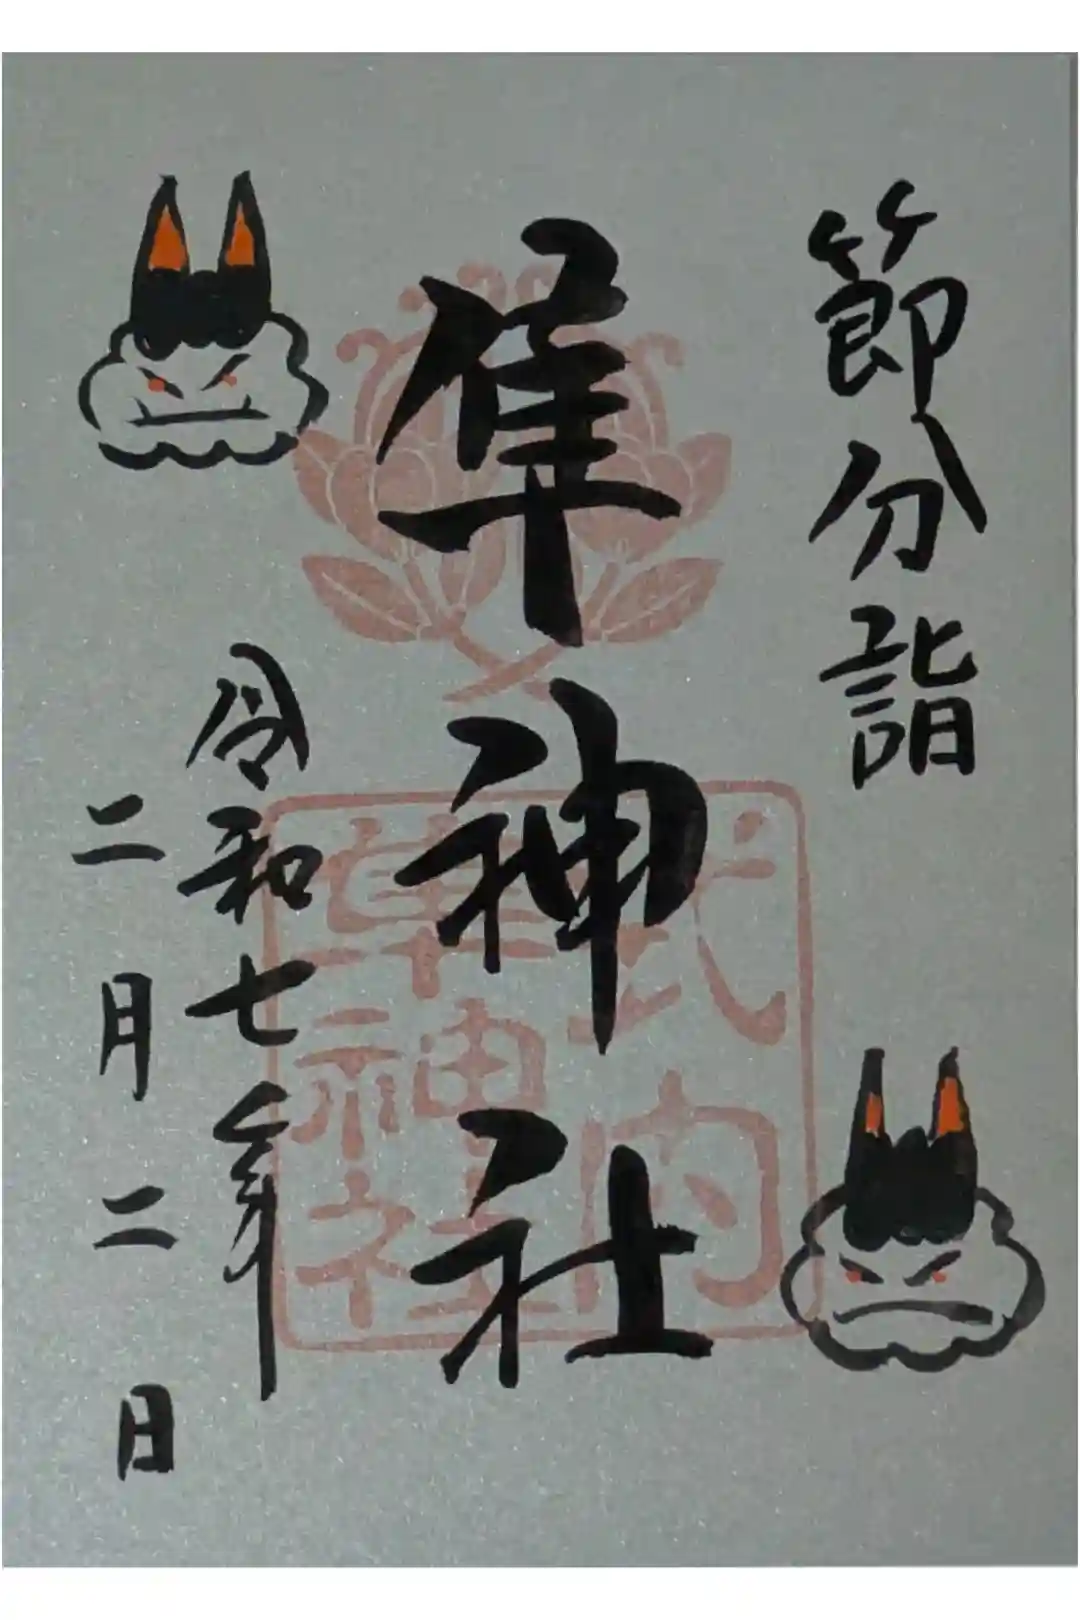 節分詣
隼神社
令和七年
二月二日
式内
隼神社